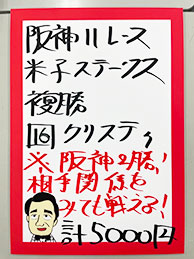 阪神11レース
米子ステークス
複勝
16 クリスティ
※阪神2勝!
相手関係を
みても戦える!
計5000円